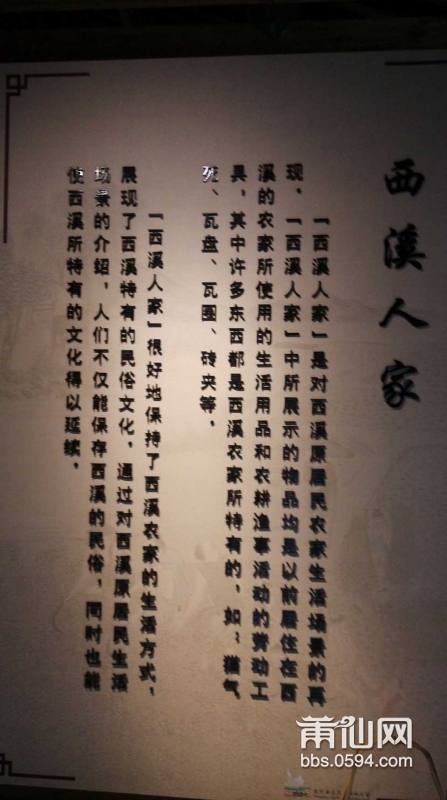 西溪人家
「西溪人家」是对西溪原居民农家生活场景的再
现，「西溪人家」中所展示的物品均是以前居住在西
溪的农家所使用的生活用品和农耕渔事活动的劳动工
具，其中许多东西都是西溪农家所特有的，如：猫气
死、瓦盘、瓦圑、砖夹等，
「西溪人家」很好地保持了西溪农家的生活方式、
展现了西溪特有的民俗文化，通过对西溪原居民生活
场景的介绍，人们不仅能保存西溪的民俗，同时也能
使西溪所特有的文化得以延续，
莆仙网
bbs.0594.com